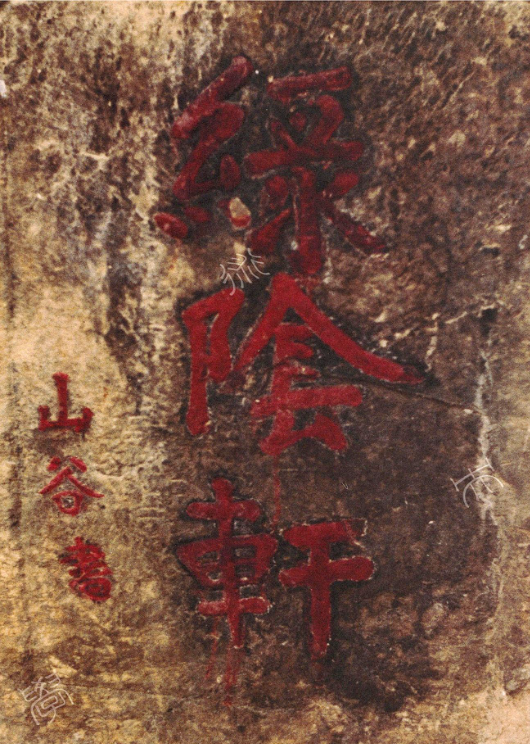 綠陰軒
山谷書